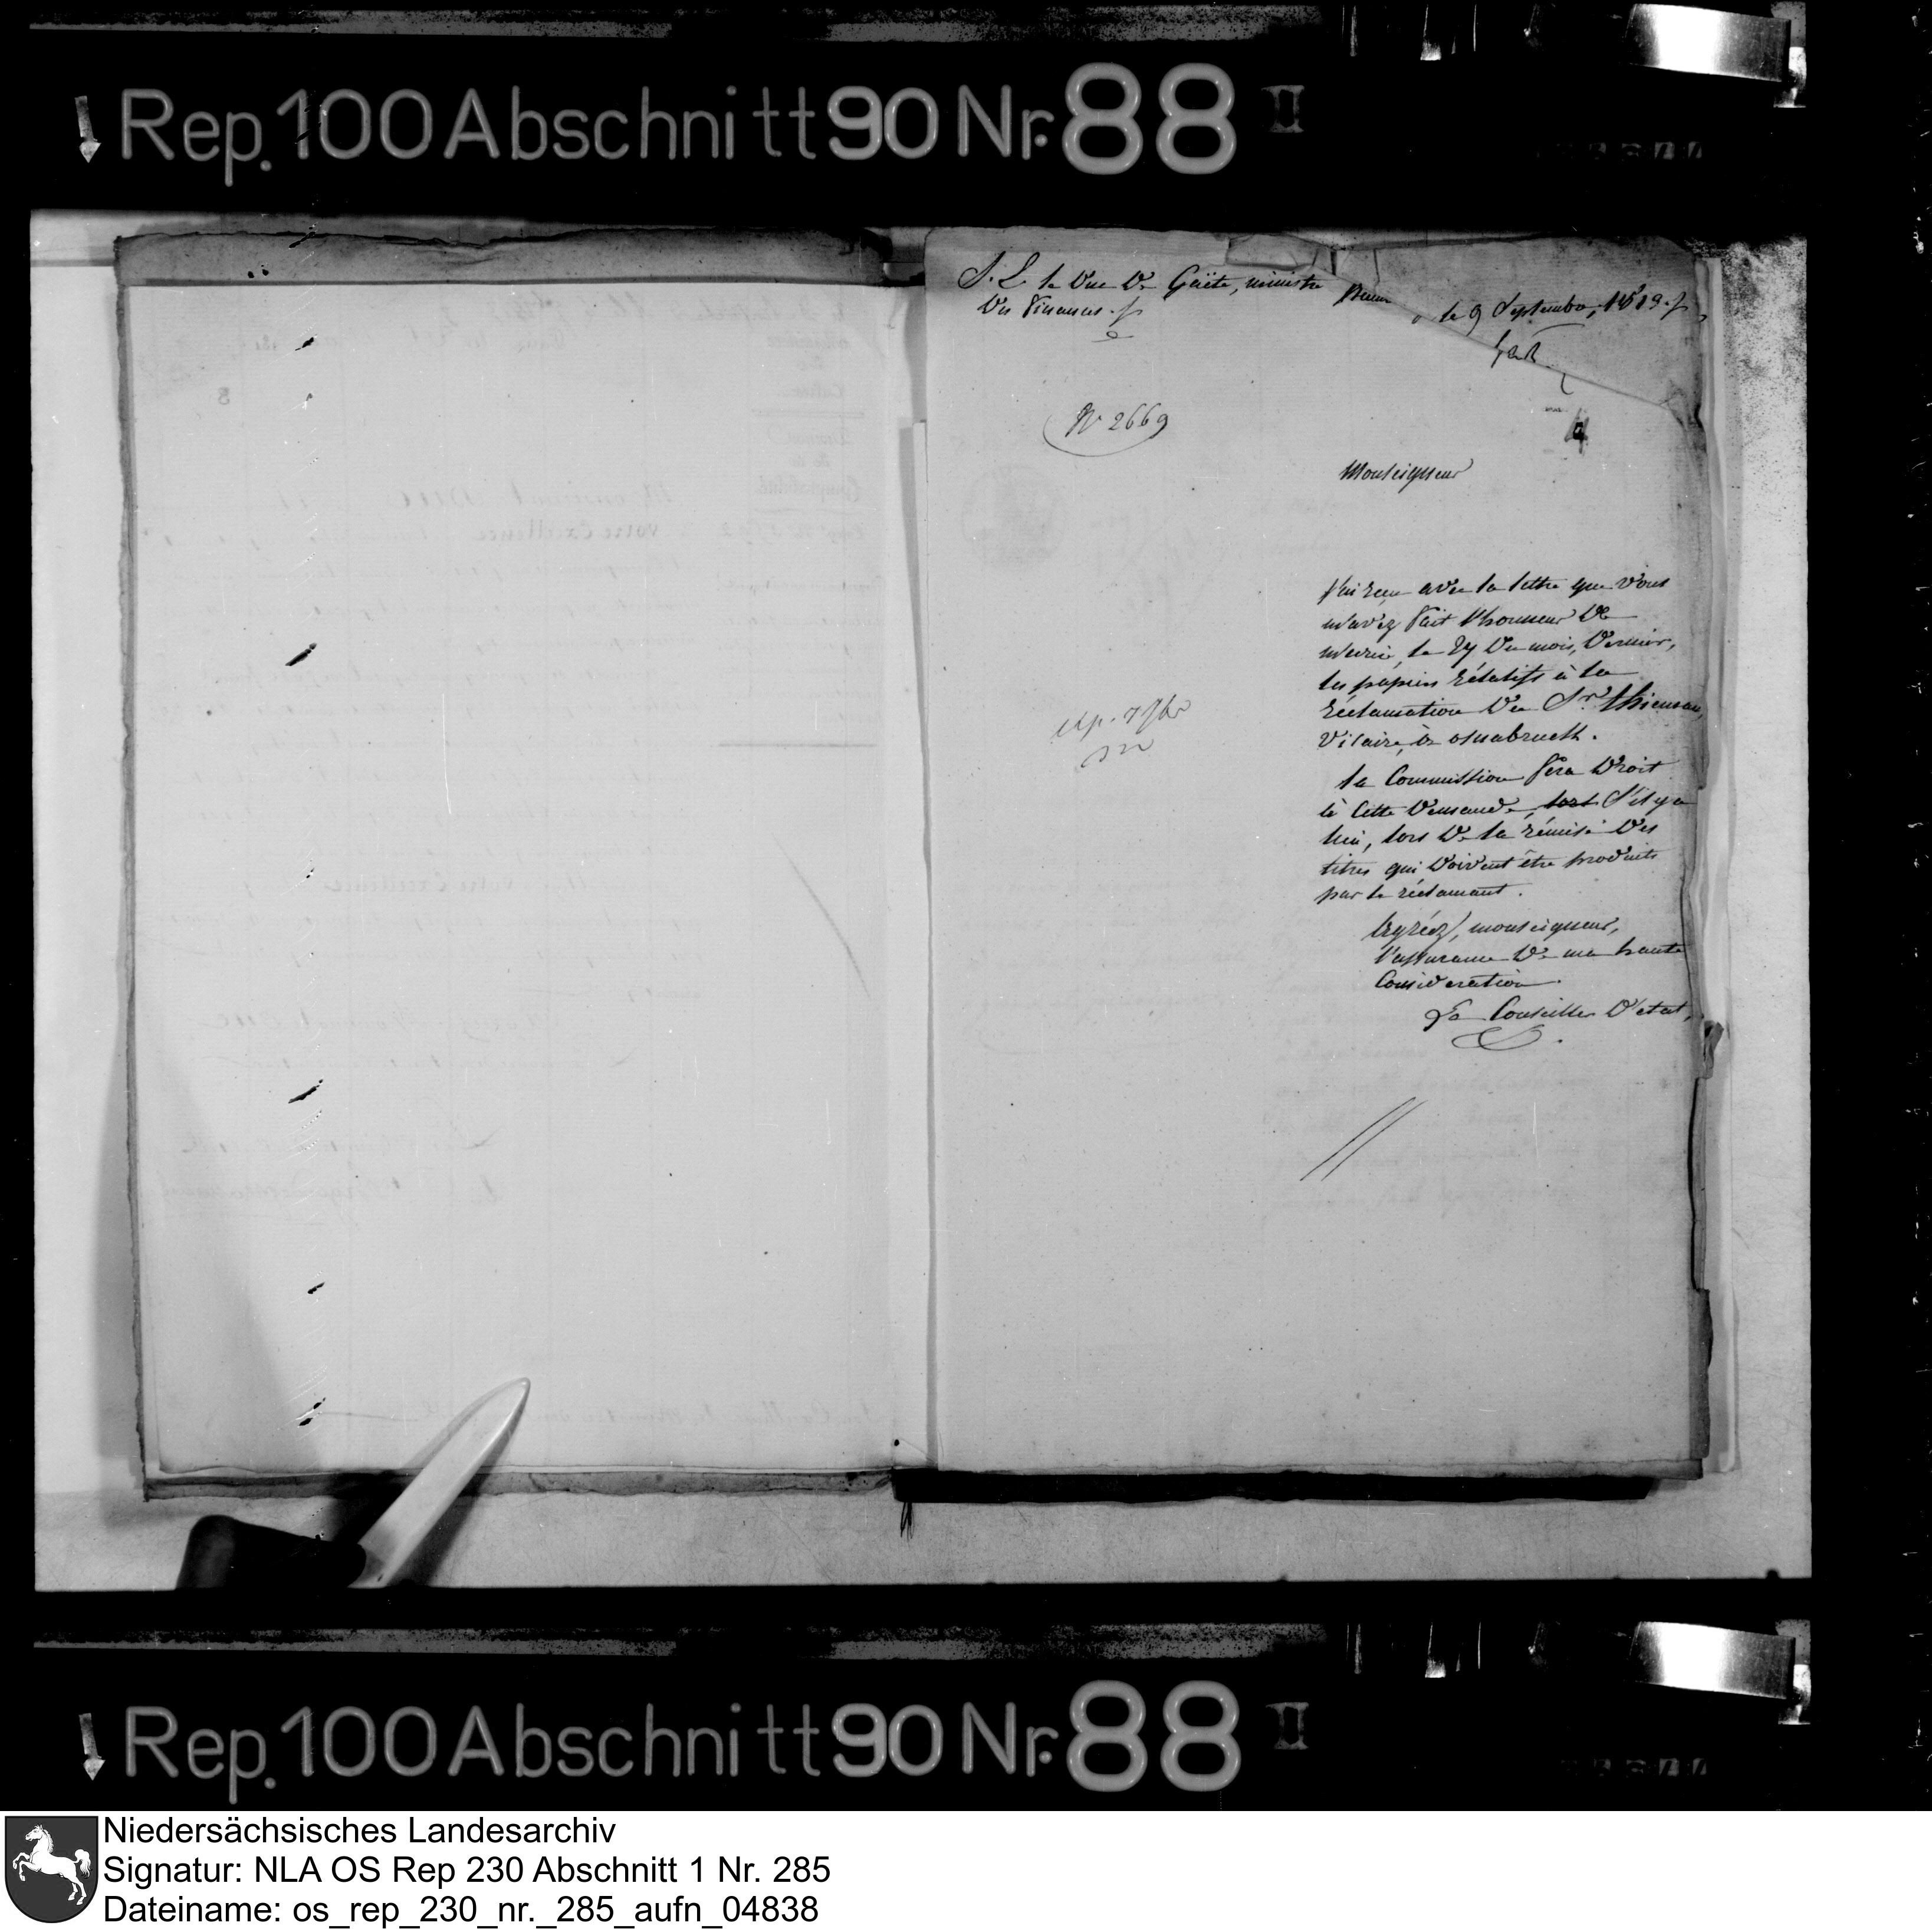 Rep. 100 Abschnitt 90 Nr. 88 II
S. E. le Duc De Gaëte, ministre
Des Finances.
le 9 Septembre, 1813.
N° 2669
4
Monseigneur
J'ai reçu avec la lettre que Vous
m'avez Fait l'honneur De
m'ecrire, le 27 Du mois Dernier,
les papiers rélatifs à la
réclamation Du Sr.
Vicaire, à osnabruck.
la Commission Fera Droit
à Cette Demande, s'il y a
lieu, lors De la rémise Des
titres qui Doivent être produits
par le réclamant.
exp. 9 7bre
Agréez, monseigneur,
l'assurance De ma haute
Consideration.
Le Conseiller D'etat,
Rep. 100 Abschnitt 90 Nr. 88 II
Niedersächsisches Landesarchiv
Signatur: NLA OS Rep 230 Abschnitt 1 Nr. 285
Dateiname: os_rep_230_nr._285_aufn_04838